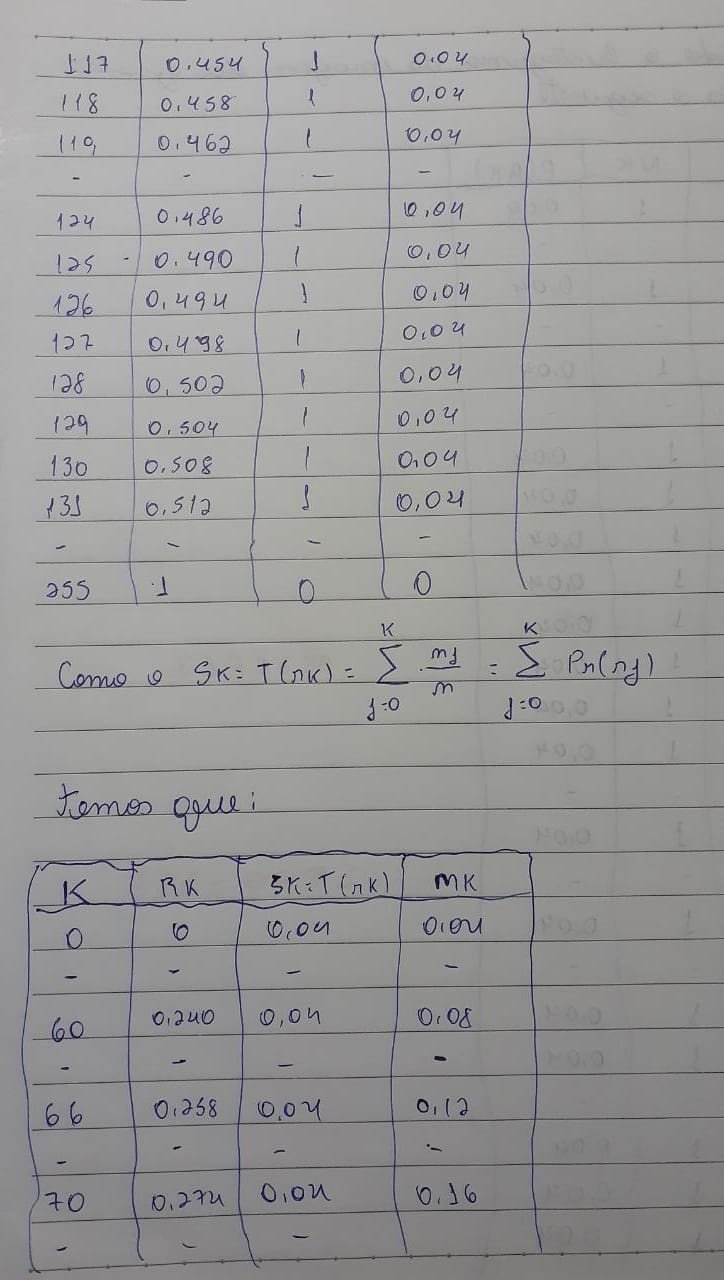 117 0.454 1 0.04
118 0.458 1 0,04
119, 0.462 1 0,04
- - - -
124 0.486 1 0,04
125 0.490 1 0,04
126 0,494 1 0,04
127 0.498 1 0,04
128 0,502 1 0,04
129 0.504 1 0,04
130 0.508 1 0,04
131 0,512 1 0,04
- - - -
255 1 0 0
Como o SK = T(rK) = K∑j=0 nj/n = K∑j=0 Pr(rj)
temos que:
K RK SK=T(rK) mK
0 0 0,04 0,04
- - - -
60 0,240 0,04 0,08
- - - -
66 0,258 0,04 0,12
- - - -
70 0,274 0,04 0,16
- - -